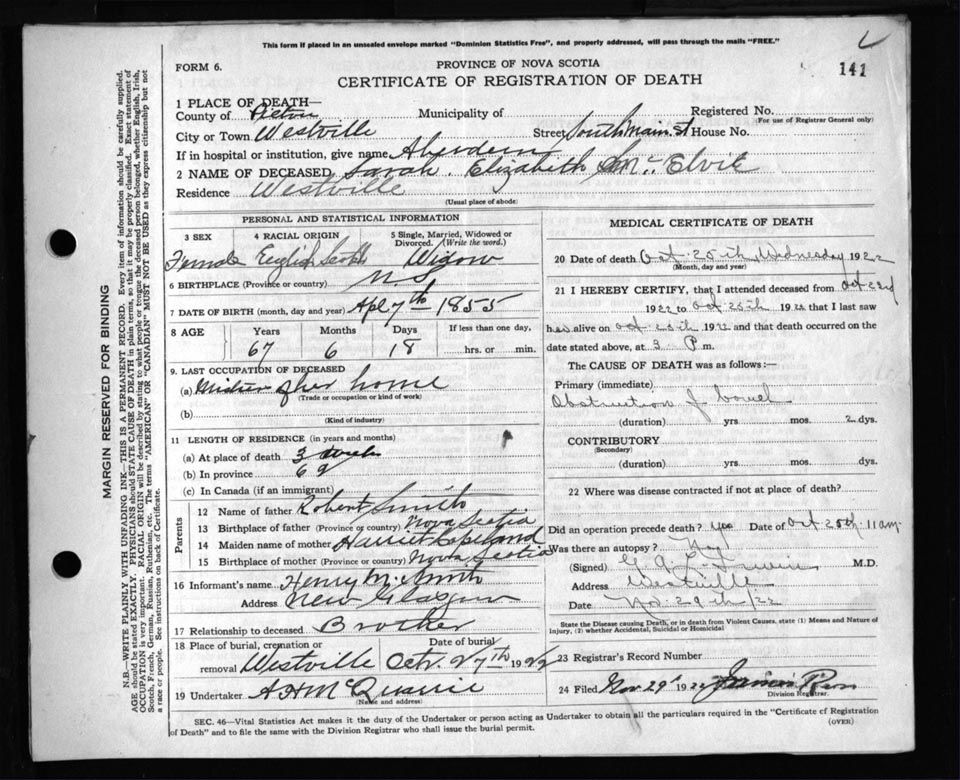 This form if placed in an unsealed envelope marked "Dominion Statistics Free", and properly addressed, will pass through the mails "FREE."
FORM 6.
PROVINCE OF NOVA SCOTIA
141
CERTIFICATE OF REGISTRATION OF DEATH
1 PLACE OF DEATH—
County of Pictou Municipality of Registered No.
(For use of Registrar General only)
City or Town Westville Street South Main St House No.
If in hospital or institution, give name Aberdeen
2 NAME OF DECEASED Sarah Elizabeth Mc Elvie
Residence Westville
(Usual place of abode)
PERSONAL AND STATISTICAL INFORMATION
3 SEX 4 RACIAL ORIGIN 5 Single, Married, Widowed or Divorced. (Write the word.)
Female English Scotch Widow
6 BIRTHPLACE (Province or country) N. S.
7 DATE OF BIRTH (month, day and year) Apl 7th 1855
8 AGE Years Months Days If less than one day,
67 6 18 hrs. or min.
9. LAST OCCUPATION OF DECEASED
(a) of her home
(Trade or occupation or kind of work)
(b)
(Kind of industry)
11 LENGTH OF RESIDENCE (in years and months)
(a) At place of death 3 weeks
(b) In province
(c) In Canada (if an immigrant)
Parents
12 Name of father Robert Smith
13 Birthplace of father (Province or country) Nova Scotia
14 Maiden name of mother Harriet Copeland
15 Birthplace of mother (Province or country) Nova Scotia
16 Informant's name Henry Smith
Address New Glasgow
17 Relationship to deceased Brother
18 Place of burial, cremation or removal Westville Date of burial Oct. 27th 1922
19 Undertaker A H McQuarrie
(Name and address)
MEDICAL CERTIFICATE OF DEATH
20 Date of death Oct 25th, Wednesday 1922
(Month, day and year)
21 I HEREBY CERTIFY, that I attended deceased from Oct 23rd
1922 to Oct 25th 1922 that I last saw
her alive on Oct 25th 1922 and that death occurred on
date stated above, at 3 P m.
The CAUSE OF DEATH was as follows:—
Primary (immediate)
Obstruction of bowel
(duration) yrs mos 2 dys.
CONTRIBUTORY
(Secondary)
(duration) yrs mos dys.
22 Where was disease contracted if not at place of death?
Did an operation precede death? Yes Date of Oct 25th 11 am
Was there an autopsy? No
(Signed) M.D.
Address Westville
Date Nov 29th/22
State the Disease causing Death, or in death from Violent Causes, state (1) Means and Nature of
Injury, (2) whether Accidental, Suicidal or Homicidal
23 Registrar's Record Number
24 Filed Nov. 29 1922
Division Registrar.
SEC. 46—Vital Statistics Act makes it the duty of the Undertaker or person acting as Undertaker to obtain all the particulars required in the "Certificate of Registration
of Death" and to file the same with the Division Registrar who shall issue the burial permit.
(OVER)
MARGIN RESERVED FOR BINDING
N.B.—WRITE PLAINLY WITH UNFADING INK—THIS IS A PERMANENT RECORD. Every item of information should be carefully supplied.
AGE should be stated EXACTLY. PHYSICIANS should STATE CAUSE OF DEATH in plain terms, so that it may be properly classified. Exact statement of
OCCUPATION is very important. RACIAL ORIGIN will be described by stating to what people or tongue the deceased person belonged, whether English, Irish,
Scotch, French, German, Russian, Ruthenian, etc. The terms "AMERICAN" OR "CANADIAN" MUST NOT BE USED as they express citizenship but not
a race or people. See instructions on back of Certificate.